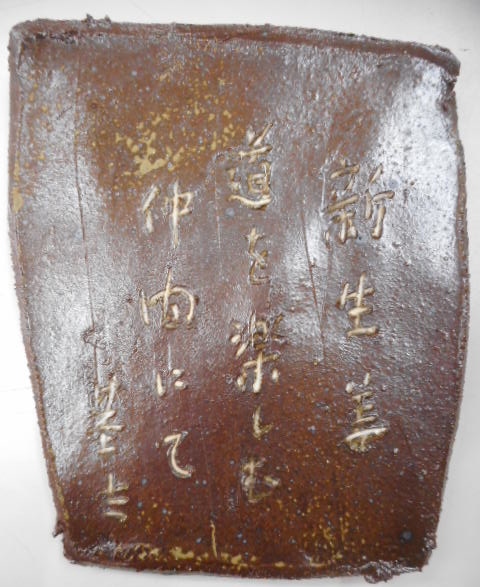 新生姜
道を楽しむ
仲由にて